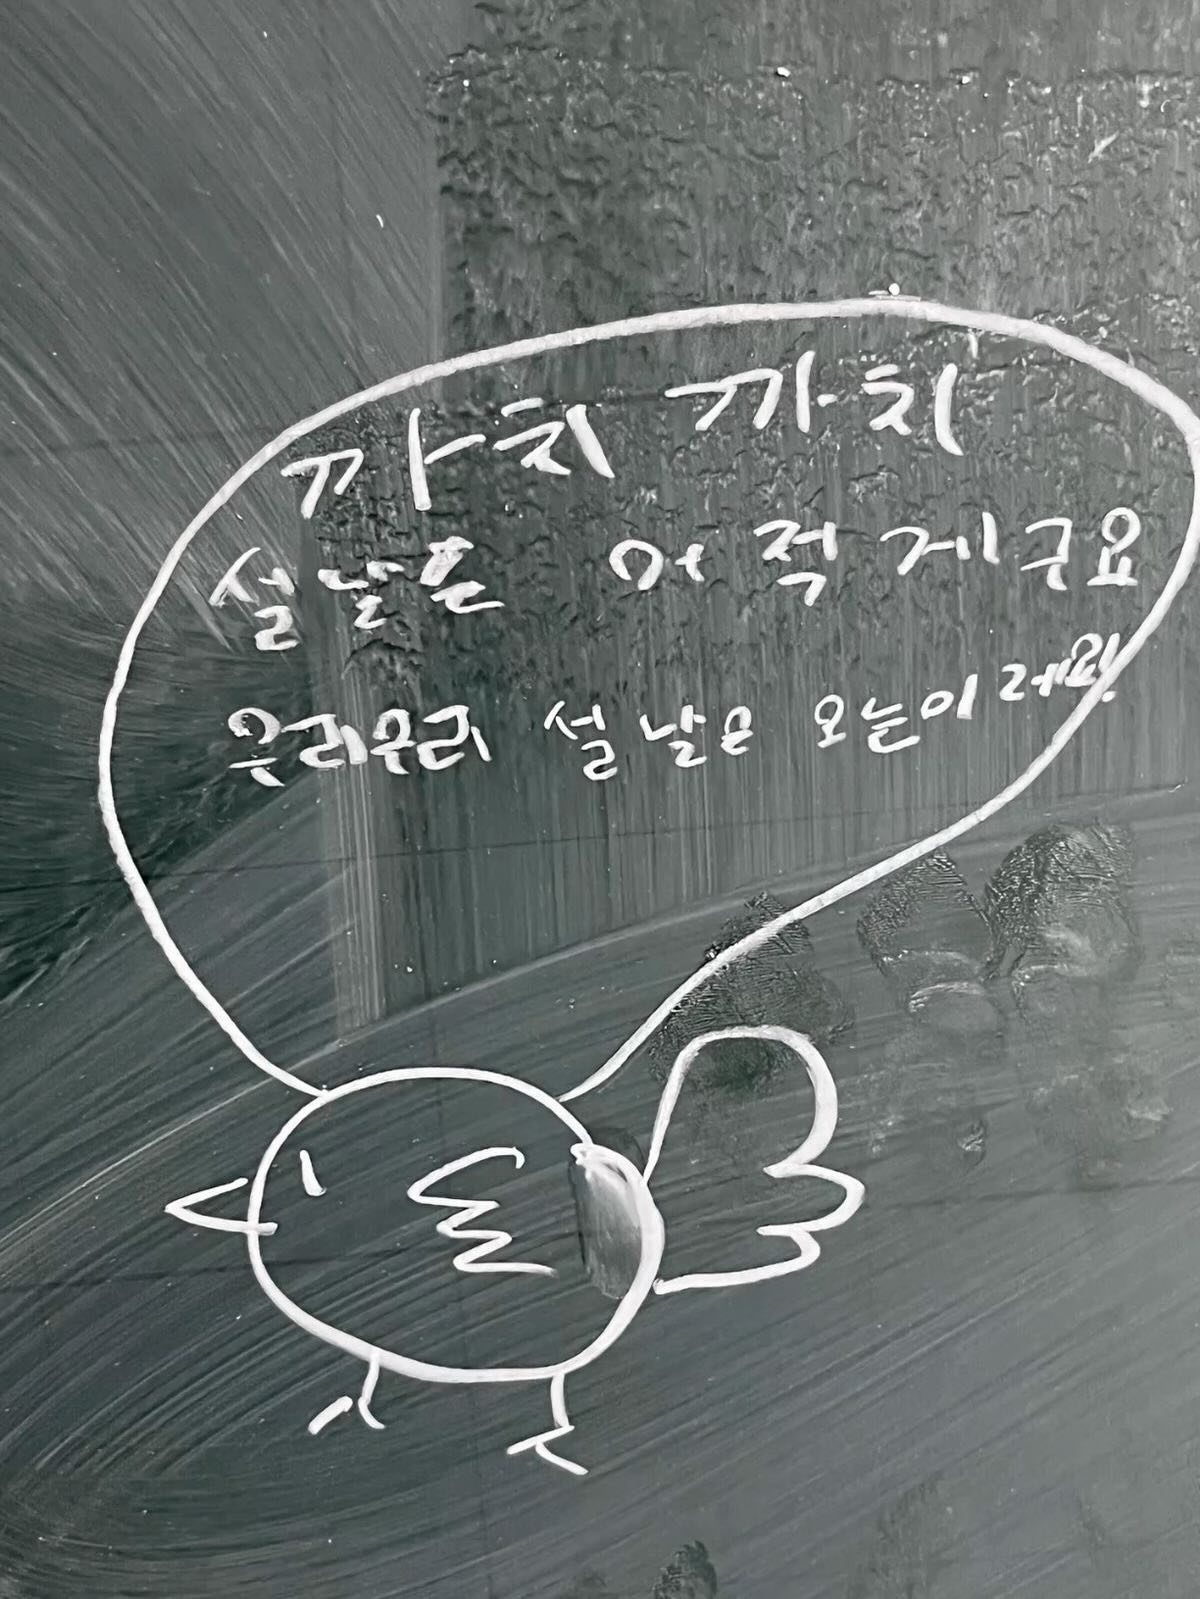 까치 까치
설날은 어적게구요
우리우리 설날은 오늘이래요!